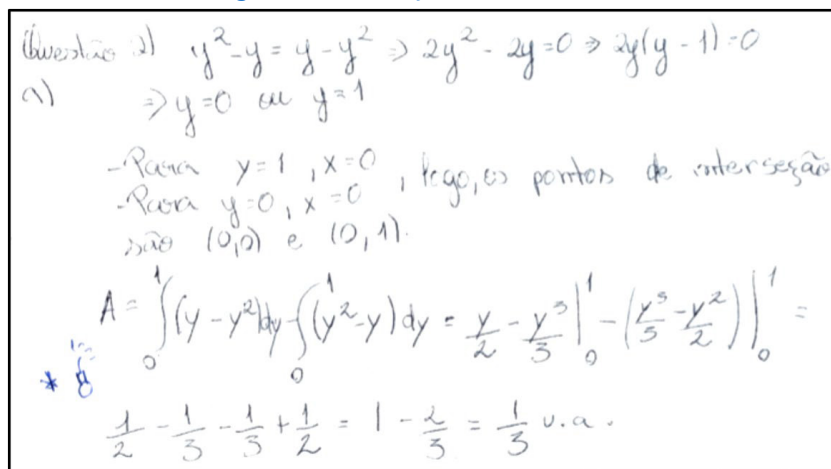 Questão 2) y² - y = y - y² ⇒ 2y² - 2y = 0 ⇒ 2y(y - 1) = 0
a) ⇒ y = 0 ou y = 1
- Para y = 1, x = 0
- Para y = 0, x = 0, logo, os pontos de interseção
são (0,0) e (0,1).
A = ∫₀¹ (y - y²) dy - ∫₀¹ (y² - y) dy = y/2 - y³/3 |₀¹ - (y³/3 - y²/2) |₀¹ =
*
1/2 - 1/3 - 1/3 + 1/2 = 1 - 2/3 = 1/3 u.a.